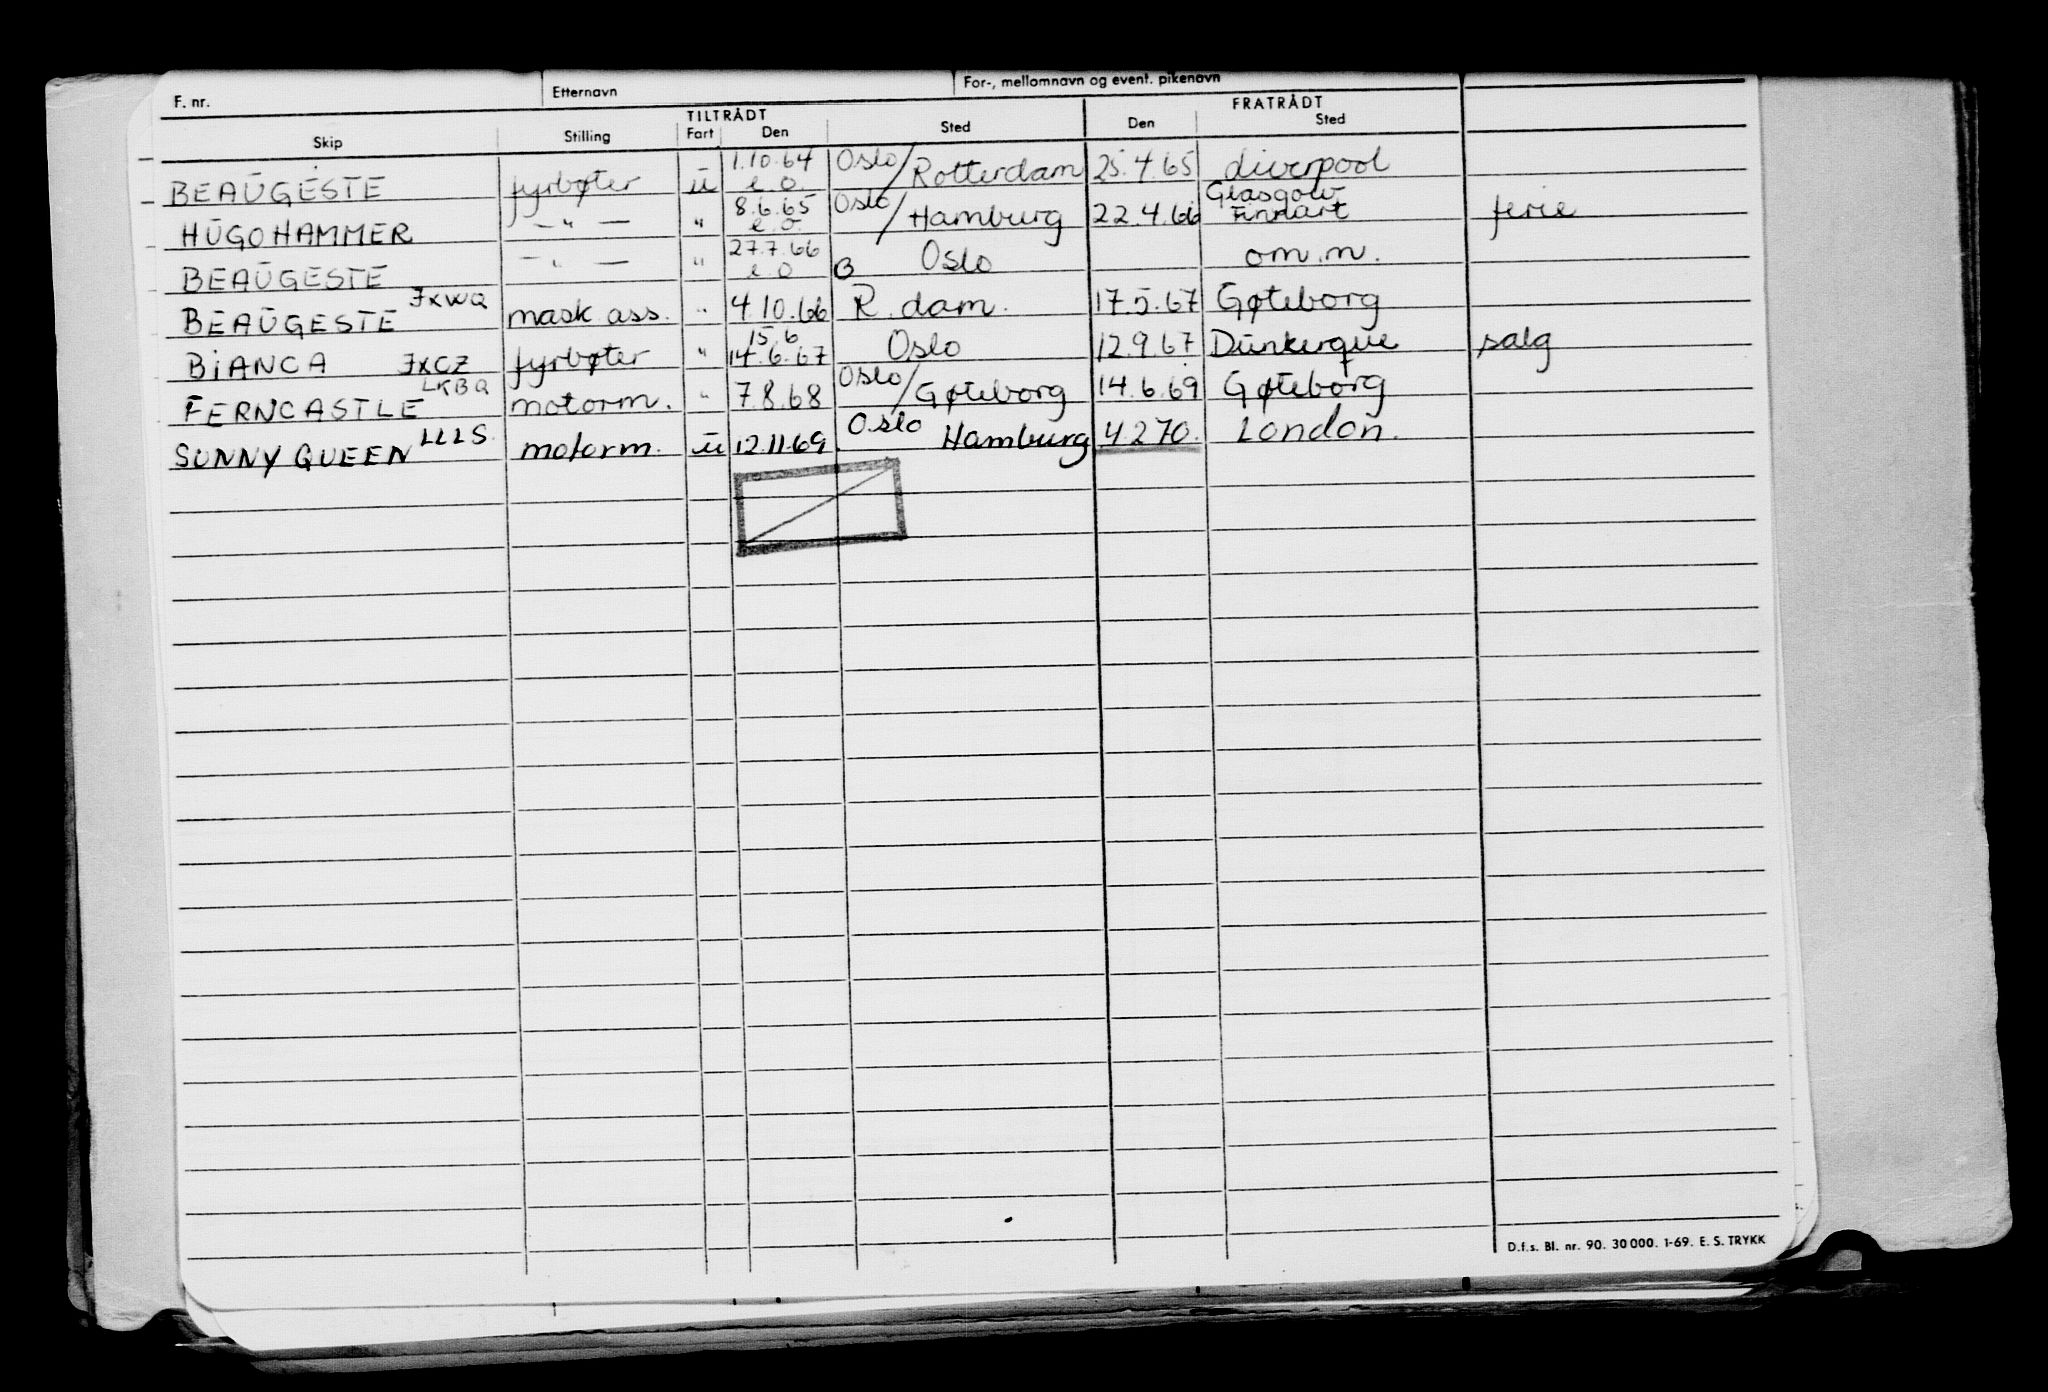 F. nr. Etternavn For-, mellomnavn og event. pikenavn
TILTRÅDT FRATRÅDT
Skip Stilling Fart Den Sted Den Sted
BEAUGESTE fyrbøter u 1.10.64 e.o. Oslo/Rotterdam 25.4.65 Liverpool
HUGO HAMMER — " — " 8.6.65 e.o. Oslo/Hamburg 22.4.66 Glasgow Finnart ferie
BEAUGESTE — " — " 27.7.66 e.o B Oslo om.m.
BEAUGESTE JXWQ mask ass. " 4.10.66 R.dam. 17.5.67 Gøteborg
BIANCA JXCZ fyrbøter " 15.6 14.6.67 Oslo 12.9.67 Dunkerque salg
FERNCASTLE LKBQ motorm. " 7.8.68 Oslo/Gøteborg 14.6.69 Gøteborg
SUNNY QUEEN LLLS. motorm. u 12.11.69. Oslo Hamburg 4.2.70. London.
D.f.s. Bl. nr. 90. 30 000. 1-69. E. S. TRYKK